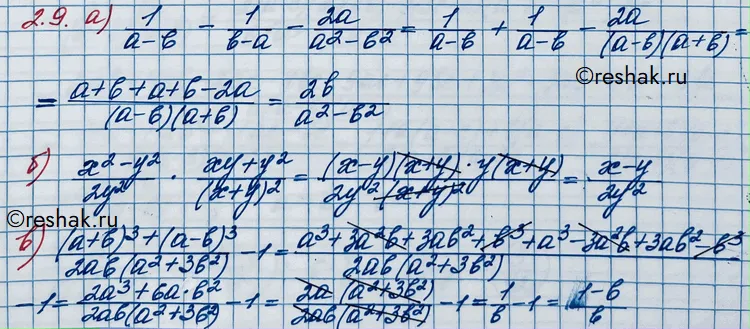 2.9. а) 1/(a-b) - 1/(b-a) - 2a/(a²-b²) = 1/(a-b) + 1/(a-b) - 2a/((a-b)(a+b)) =
©reshak.ru
= (a+b+a+b-2a)/((a-b)(a+b)) = 2b/(a²-b²)
б) (x²-y²)/(2y²) · (xy+y²)/(x+y)² = ((x-y)(x+y)·y(x+y))/(2y²(x+y)²) = (x-y)/(2y²)
©reshak.ru
в) ((a+b)³+(a-b)³)/(2ab(a²+3b²)) - 1 = (a³+3a²b+3ab²+b³+a³-3a²b+3ab²-b³)/(2ab(a²+3b²))
-1 = (2a³+6a·b²)/(2ab(a²+3b²)) - 1 = (2a(a²+3b²))/(2ab(a²+3b²)) - 1 = 1/b - 1 = (1-b)/b